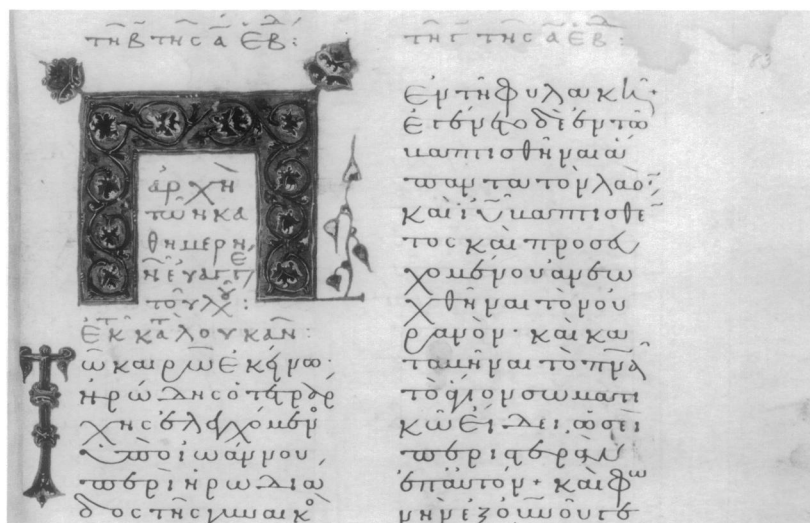 τῆ β τῆς ᾱ ἑβ:
ἀρχὴ
τῶν κα
θημερι
νῶν εὐαγγ
τοῦ λχ:
ἐκ τ κατ λουκᾶν:
Τῶ καιρῶ ἐκείνω·
ἡρώδης ὁ τετράρ
χης ἐλεγχόμενο
ὑπὸ ἰωάννου
περὶ ἡρωδιά
δος τῆς γυναικὸ
τῆ γ τῆς ᾱ ἑβ:
ἐν τῆ φυλακῆ·
ἐγένετο δὲ ἐν τῶ
βαπτισθῆναι ἅ
παντα τὸν λαόν·
καὶ ἰυ βαπτισθέν
τος καὶ προσευ
χομένου ἀνεω
χθῆναι τὸν οὐ
ρανὸν· καὶ κα
ταβῆναι τὸ πνα
τὸ ἅγιον σωματι
κῶ εἴδει ὡσεὶ
περιστερὰν
ἐπαὐτόν· καὶ φω
νὴν ἐξ οὐνοῦ γε